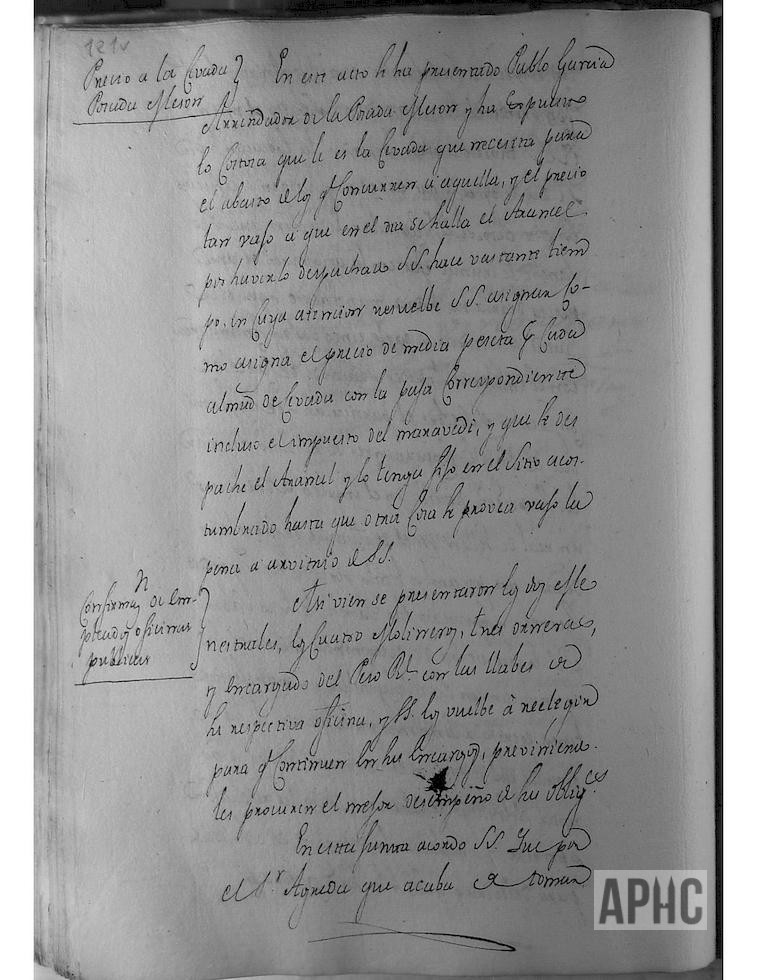 121v
Precio a la Cevada
Posada Meson
En este acto se ha presentado Pablo Garcia
Arrendador de la Posada Meson y ha Espuesto
lo Costosa que le es la Cevada que necesita para
el abasto de los q.e Concurren a aquella, y el precio
tan vajo a que en el dia se halla el Arancel
por haverlo despachado SS. hace vastante tiem
po. en Cuya atencion resuelbe SS. asignar Co-
mo asigna el precio de media peseta Cada
almud de Cevada con la paja Correspondiente
incluso el impuesto del maravedi, y que se des
pache el Arancel y lo tenga fijo en el Sitio acos-
tumbrado hasta que otra Cosa se provea vajo la
pena a arvitrio de SS.
Confirmaz.n de Em-
pleados oficinas
publicas
Asi vien se presentaron los dos Me
nestrales, los Cuatro Molineros, tres
y Encargado del Peso R.l con las llabes de
su respectiva oficina, y SS. los vuelbe à reelegir
para q.e Continuen en sus Encargos, previniendo-
les procuren el mejor desempeño de sus oblig.es
En esta Junta acordo SS. Que por
el S.r Agreda que acaba de tomar
APHC